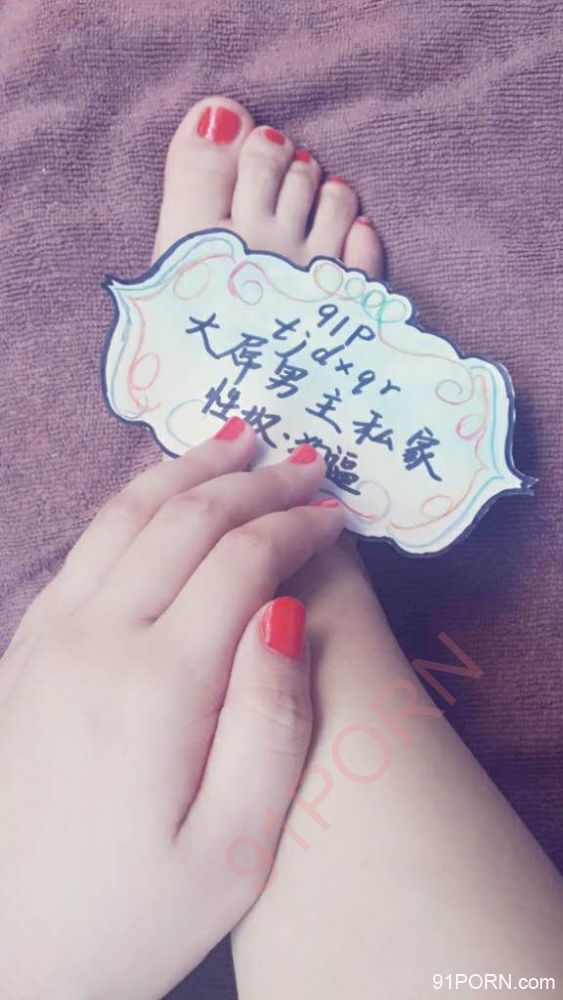 91P
tjdxqr
大屌男主私家
性奴·
91PORN
91PORN.com